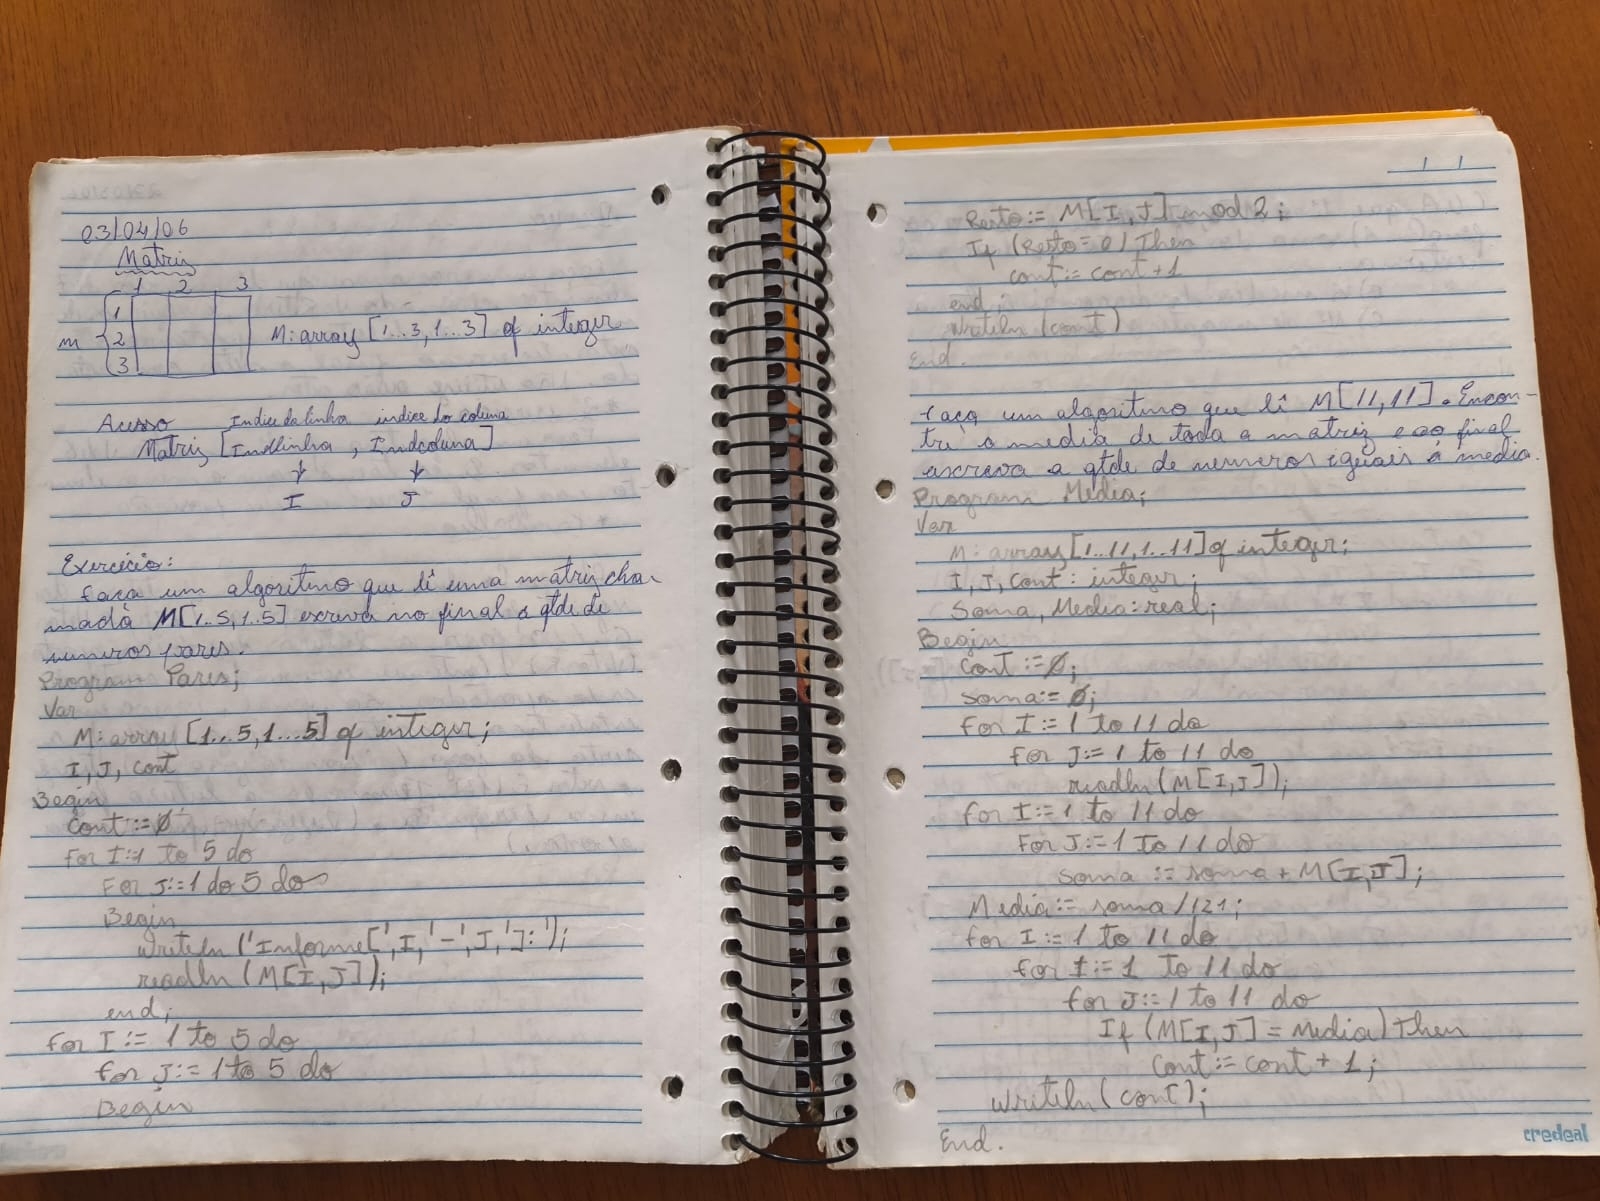 03/04/06
Matriz
1 2 3
1
m 2 M: array [1...3, 1...3] of integer
3
Acesso Indice da linha indice do coluna
Matriz [Indlinha , Indcoluna]
I J
Exercício:
Faça um algoritmo que lê uma matriz cha-
mada M[1..5,1..5] escreva no final a qtde de
numeros pares.
Program Pares;
Var
M: array [1...5,1...5] of integer;
I, J, cont
Begin
cont := Ø
For I:=1 to 5 do
For J:=1 do 5 do
Begin
writeln ('Informe[',I,'-',J,']:');
readln (M[I,J]);
end;
for I := 1 to 5 do
for J:= 1 to 5 do
Begin
Resto:= M[I,J] mod 2;
If (Resto=0) Then
cont:= cont +1
end;
writeln (cont)
End.
Faça um algoritmo que lê M[11,11]. Encon-
tre a media de toda a matriz e ao final
escreva a qtde de numeros iguais á media.
Program Media;
Var
M: array[1..11,1..11] of integer;
I, J, Cont: integer;
Soma, Media: real;
Begin
Cont := Ø;
soma:= Ø;
for I := 1 to 11 do
for J:= 1 to 11 do
readln(M[I,J]);
for I:= 1 to 11 do
For J:=1 To 11 do
soma := soma + M[I,J];
Media:= soma/121;
for I := 1 to 11 do
for I:= 1 to 11 do
for J:= 1 to 11 do
If (M[I,J] = Media) Then
Cont:= cont + 1;
writeln (cont);
End.
credeal